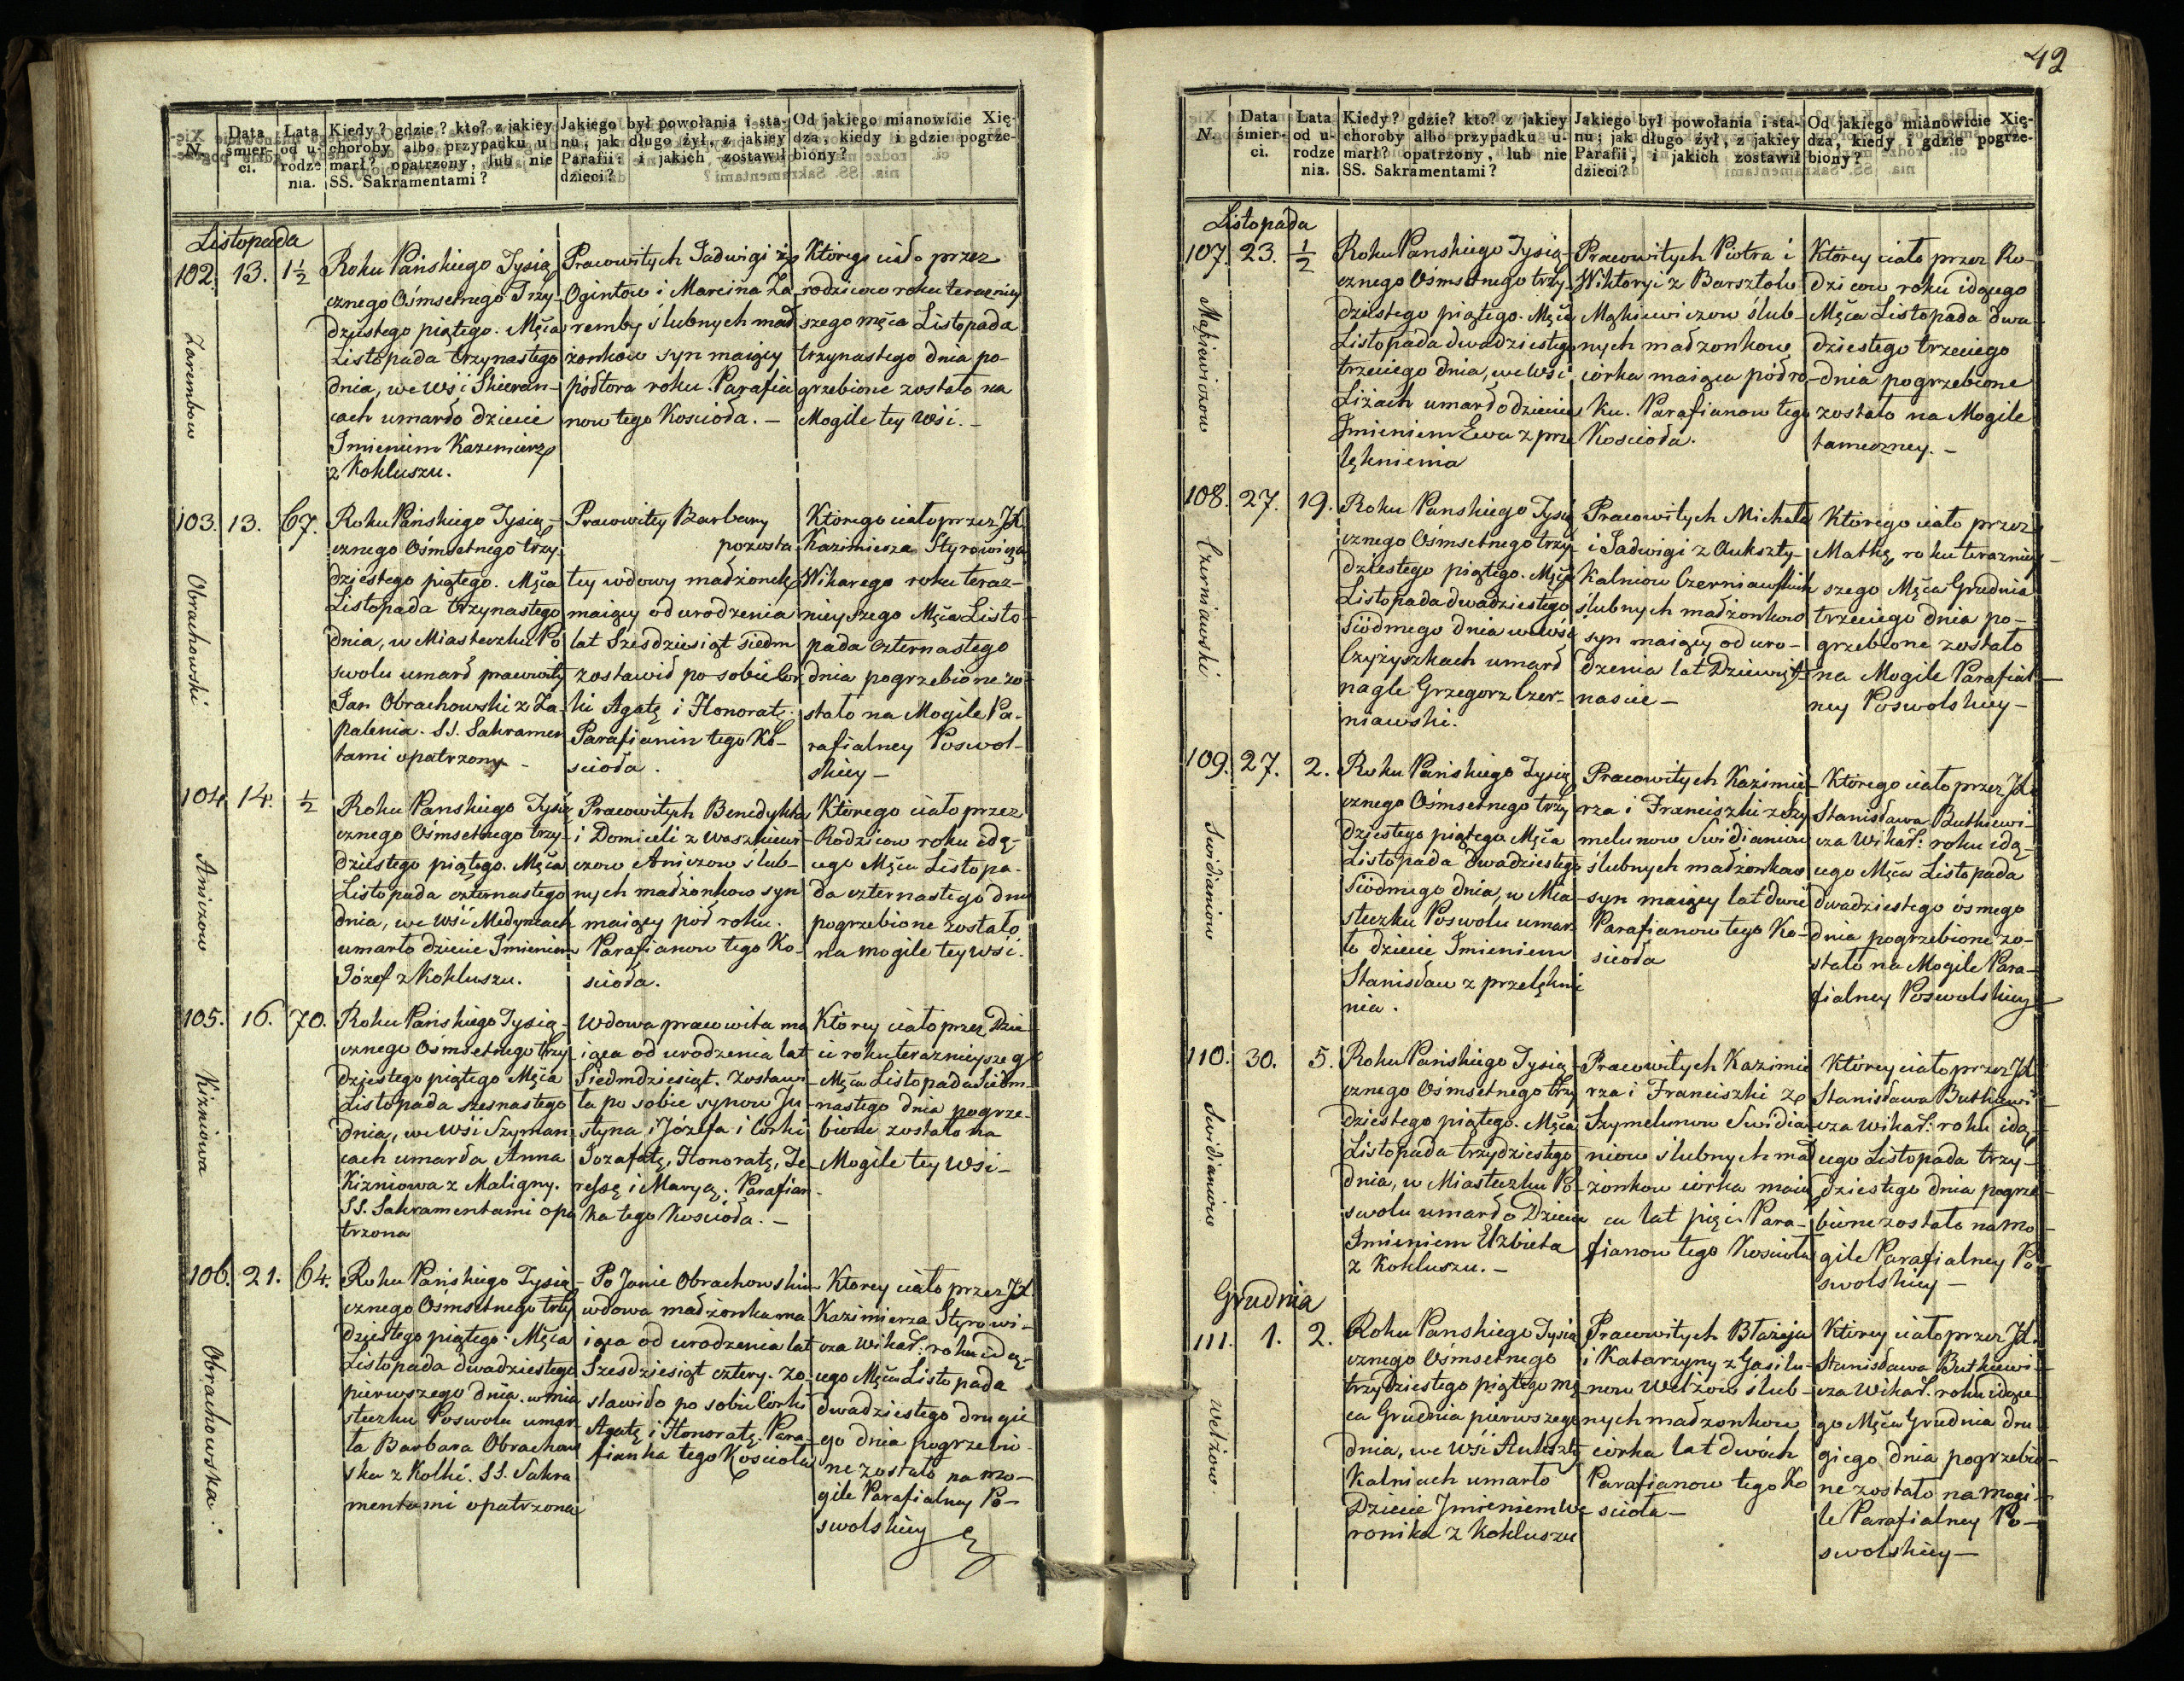 42
N.
Data śmier- ci.
Lata od u- rodze nia.
Kiedy? gdzie? kto? z jakiey
choroby albo przypadku u-
marł? opatrzony, lub nie
SS. Sakramentami?
Jakiego był powołania i sta-
nu; jak długo żył, z jakiey
Parafii; i jakich zostawił
dzieci?
Od jakiego mianowicie Xię-
dza, kiedy i gdzie pogrze-
biony?
Listopada
102. 13. 1½
Zarembow
Roku Pańskiego Tysią
cznego Ośmsetnego Trzy-
dziestego piątego. Mśca
Listopada trzynastego
dnia, we Wśi Skieran-
cach umarło dziecie
Imieniem Kazimierz
z Kokluszu.
Pracowitych Jadwigi z
Ogintow i Marcina Za
remby slubnych mał
żonkow syn maiący
półtora roku. Parafia
now tego Kościoła. –
Którego ciało przez
rodzicow roku teraźniey
szego mśca Listopada
trzynastego dnia po-
grzebione zostało na
Mogile tey Wśi. –
103. 13. 67.
Obrachowski
Roku Pańskiego Tysią-
cznego Ośmsetnego trzy
dziestego piątego. Mśca
Listopada trzynastego
dnia, w Miasteczku Po
swolu umarł pracowity
Jan Obrachowski z Za-
palenia. SS. Sakramen
tami opatrzony –
Pracowitey Barbary
pozosta
tey wdowy małżonek
maiący od urodzenia
lat Szesdziesiąt siedm
zostawił po sobie Cor
ki Agatę i Honoratę.
Parafianin tego Ko-
ścioła.
Którego ciało przez JX.
Kazimierza Styrowicza
Wikarego roku teraz-
nieyszego Mśca Listo-
pada czternastego
dnia pogrzebione zo
stało na Mogile Pa-
rafialney Poswol-
skiey –
104. 14. ½
Aniczow
Roku Pańskiego Tysią
cznego Ośmsetnego trzy-
dziestego piątego. Mśca
Listopada czternastego
dnia, we Wśi Medynicach
umarło dziecie Imieniem
Józef z Kokluszu.
Pracowitych Benedykta
i Domiceli z Waszkiewi-
czow Aniczow slub-
nych małżonkow syn
maiący pół roku.
Parafianow tego Ko-
ścioła.
Którego ciało przez
Rodzicow roku idą-
cego Mśca Listopa-
da czternastego dnia
pogrzebione zostało
na mogile tey wśi.
105. 16. 70.
Kizniowa
Roku Pańskiego Tysią-
cznego Ośmsetnego trzy
dziestego piątego Mśca
Listopada szesnastego
dnia, we Wśi Szyman
cach umarła Anna
Kizniowa z Maligny.
SS. Sakramentami opa
trzona
Wdowa pracowita ma
iąca od urodzenia lat
Siedmdziesiąt. Zostawi
ła po sobie synow Ju-
styna i Jozefa i Corki
Jozafatę, Honoratę, Te-
ressę i Maryą. Parafian-
ka tego Kościoła. –
Którey ciało przez Dzie
ci roku teraznieyszego
Mśca Listopada Siedm-
nastego dnia pogrze-
bione zostało na
Mogile tey Wśi –
106. 21. 64.
Obrachowska
Roku Pańskiego Tysią-
cznego Ośmsetnego trzy
dziestego piątego. Mśca
Listopada dwadziestego
pierwszego dnia. w mia
steczku Poswolu umar
ła Barbara Obrachow
ska z Kolki. SS. Sakra
mentami opatrzona
Po Janie Obrachowskim
wdowa małżonka ma
iąca od urodzenia lat
Szesdziesiąt cztery. Zo-
stawiło po sobie Corki
Agatę i Honoratę. Para-
fianka tego Kościoła
Ktorey ciało przez JX.
Kazimierza Styrowi-
cza Wikar: roku idą-
cego Mśca Listopada
dwadziestego drugie
go dnia pogrzebio-
ne zostało na mo-
gile Parafialney Po-
swolskiey
N.
Data śmier- ci.
Lata od u- rodze nia.
Kiedy? gdzie? kto? z jakiey
choroby albo przypadku u-
marł? opatrzony, lub nie
SS. Sakramentami?
Jakiego był powołania i sta-
nu; jak długo żył, z jakiey
Parafii, i jakich zostawił
dzieci?
Od jakiego mianowicie Xię-
dza, kiedy i gdzie pogrze-
biony?
Listopada
107. 23. ½
Mąkiewiczow
Roku Panskiego Tysią-
cznego Ośmsetnego trzy-
dziestego piątego. Mśca
Listopada dwadziestego
trzeciego dnia, we Wśi
Liżach umarło dziecie
Imieniem Ewa z prze
lęknienia
Pracowitych Piotra i
Wiktoryi z Barsztow
Mąkiewiczow ślub-
nych małzonkow
corka maiąca pół ro-
ku. Parafianow tego
Kościoła.
Którey ciało przez Ro-
dzicow roku idącego
Mśca Listopada dwa-
dziestego trzeciego
dnia pogrzebione
zostało na Mogile
tameczney. –
108. 27. 19.
Czerniawski
Roku Panskiego Tysią
cznego Ośmsetnego trzy-
dziestego piątego. Mśca
Listopada dwadziestego
siódmego dnia we Wśi
Czyżyszkach umarł
nagle Grzegorz Czer-
niawski.
Pracowitych Michała
i Jadwigi z Aukszty-
Kalniow Czerniawskich
ślubnych małżonkow
syn maiący od uro-
dzenia lat Dziewięt-
nascie –
Którego ciało przez
Matkę, roku terazniey-
szego Mśca Grudnia
trzeciego dnia po-
grzebione zostało
na Mogile Parafial-
ney Poswolskiey –
109. 27. 2.
Swidianiow
Roku Pańskiego Tysią
cznego Ośmsetnego trzy
dziestego piątego Mśca
Listopada dwadziestego
siódmego dnia, w Mia-
steczku Poswolu umar
ło dziecie Imieniem
Stanisław z przelęknie
nia.
Pracowitych Kazimie-
rza i Franciszki z Szy
melunow Swidianiow
ślubnych małżonkow
syn maiący lat dwie
Parafianow tego Ko-
ścioła
Którego ciało przez JX.
Stanisława Butkiewi-
cza Wikar: roku idą-
cego Mśca Listopada
dwadziestego ósmego
dnia pogrzebione zo-
stało na Mogile Para-
fialney Poswolskiey
110. 30. 5.
Swidianiow
Roku Pańskiego Tysią-
cznego Ośmsetnego trzy
dziestego piątego. Mśca
Listopada trzydziestego
dnia, w Miasteczku Po-
swolu umarło Dziecie
Imieniem Elzbieta
z Kokluszu. –
Pracowitych Kazimie
rza i Franciszki z
Szymelunow Swidia-
niow slubnych mał
żonkow corka maią
ca lat pięć. Para-
fianow tego Kościoła
Którey ciało przez JX.
Stanisława Butkiewi
cza Wikar: roku idą-
cego Listopada trzy-
dziestego dnia pogrze-
bione zostało na mo-
gile Parafialney Po
swolskiey –
Grudnia
111. 1. 2.
Welżow
Roku Panskiego Tysią
cznego Ośmsetnego
trzydziestego piątego Mś
ca Grudnia pierwszego
dnia, we Wśi Aukszty
Kalniach umarło
Dziecie Imieniem We-
ronika z Kokluszu
Pracowitych Błażeja
i Katarzyny z Gasilu-
now Welżow ślub-
nych małzonkow
corka lat dwóch
Parafianow tego Ko
ścioła –
Którey ciało przez JX.
Stanisława Butkiewi-
cza Wikar. roku idące
go Mśca Grudnia dru
giego dnia pogrzebio-
ne zostało na Mogi-
le Parafialney Po-
swolskiey –